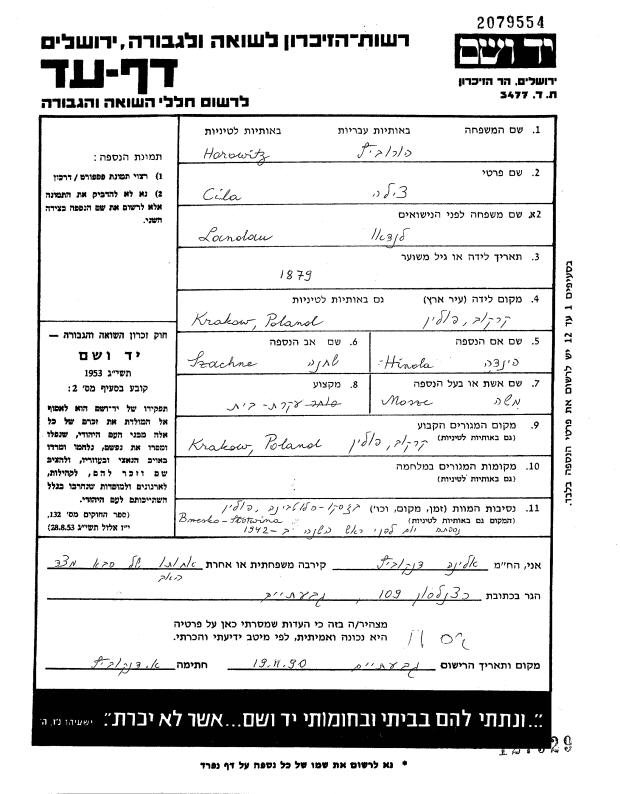 2079554
יד ושם
ירושלים, הר הזיכרון
ת. ד. 3477
רשות-הזיכרון לשואה ולגבורה, ירושלים
דף-עד
לרשום חללי השואה והגבורה
תמונת הנספה:
1) רצוי תמונת פספורט / דרכון
2) נא לא להדביק את התמונה
אלא לרשום את שם הנספה בצידה
השני.
חוק זכרון השואה והגבורה —
יד ושם
תשי״ג 1953
קובע בסעיף מס׳ 2:
תפקידו של יד-ושם הוא לאסוף
אל המולדת את זכרם של כל
אלה מבני העם היהודי, שנפלו
ומסרו את נפשם, נלחמו ומרדו
באויב הנאצי ובעוזריו, ולהציב
שם וזכר להם, לקהילות,
לארגונים ולמוסדות שנחרבו בגלל
השתייכותם לעם היהודי.
(ספר החוקים מס׳ 132,
י״ז אלול תשי״ג 28.8.53)
1. שם המשפחה באותיות עבריות באותיות לטיניות
הורוביץ Horowitz
2. שם פרטי
צילה Cila
2א. שם משפחה לפני הנישואים
לנדאו Landau
3. תאריך לידה או גיל משוער
1879
4. מקום לידה (עיר ארץ) גם באותיות לטיניות
קרקוב, פולין Krakow, Poland
5. שם אם הנספה
הינדה Hinda
6. שם אב הנספה
שחנה Szachne
7. שם אשת או בעל הנספה
משה
8. מקצוע
עקרת-בית
9. מקום המגורים הקבוע
(גם באותיות לטיניות)
קרקוב, פולין Krakow, Poland
10. מקומות המגורים במלחמה
(גם באותיות לטיניות)
11. נסיבות המוות (זמן, מקום, וכו׳)
(המקום גם באותיות לטיניות)
פולין
נספתה יום לפני ראש השנה ב-1942
בסעיפים 1 עד 12 יש לרשום את פרטי הנספה בלבד.
אני, הח״מ אלינה קירבה משפחתית או אחרת אחותו של סבא מצד
האב
הגר בכתובת כצנלסון 109, גבעתיים
מצהיר/ה בזה כי העדות שמסרתי כאן על פרטיה
היא נכונה ואמיתית, לפי מיטב ידיעתי והכרתי.
מקום ותאריך הרישום גבעתיים 19.11.90 חתימה
״...ונתתי להם בביתי ובחומותי יד ושם...אשר לא יכרת״. ישעיהו נ״ו, ה׳
* נא לרשום את שמו של כל נספה על דף נפרד